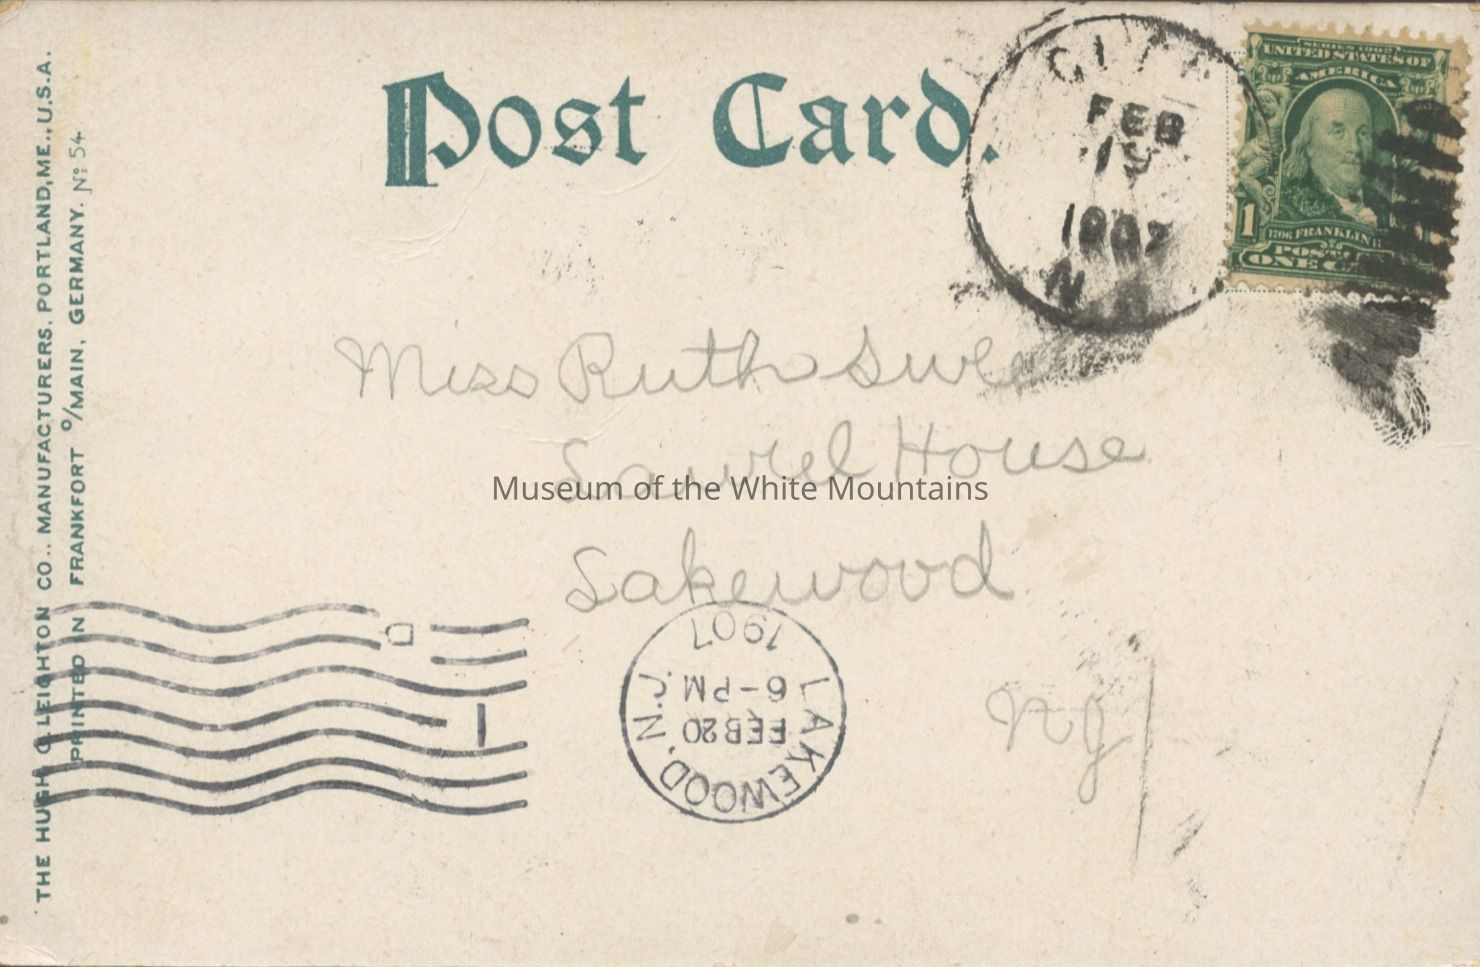 Post Card.
FEB
19
1907
N.
SERIES 1902
UNITED STATES OF
AMERICA
1
FRANKLIN
ONE
Miss Ruth
Laurel House
Lakewood
NJ
Museum of the White Mountains
THE HUGH C. LEIGHTON CO., MANUFACTURERS, PORTLAND, ME., U.S.A.
PRINTED IN FRANKFORT O/MAIN, GERMANY. No 54
D
1
LAKEWOOD, N.J.
FEB 20
6-PM
1907